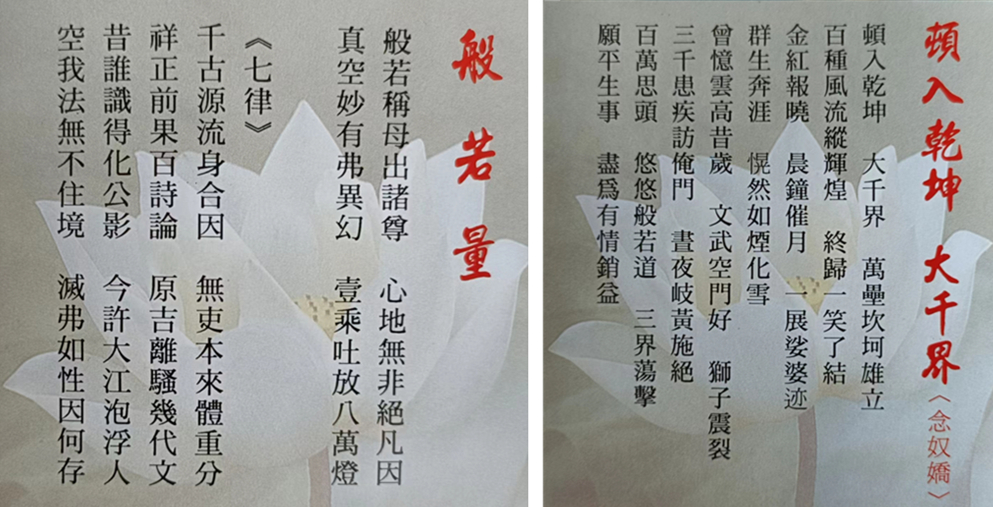 般若量
般若稱母出諸尊 心地無非絕凡因
真空妙有弗異幻 壹乘吐放八萬燈
《七律》
千古源流身合因 無吏本來體重分
祥正前果百詩論 原吉離騷幾代文
昔誰識得化公影 今許大江泡浮人
空我法無不住境 滅弗如性因何存
頓入乾坤 大千界〈念奴嬌〉
頓入乾坤 大千界 萬壘坎坷雄立
百種風流縱輝煌 終歸一笑了結
金紅報曉 晨鐘催月 一展娑婆迹
群生奔涯 愰然如煙化雪
曾憶雲高昔歲 文武空門好 獅子震裂
三千患疾訪俺門 晝夜岐黃施絕
百萬思頭 悠悠般若道 三界蕩擊
願平生事 盡爲有情銷益